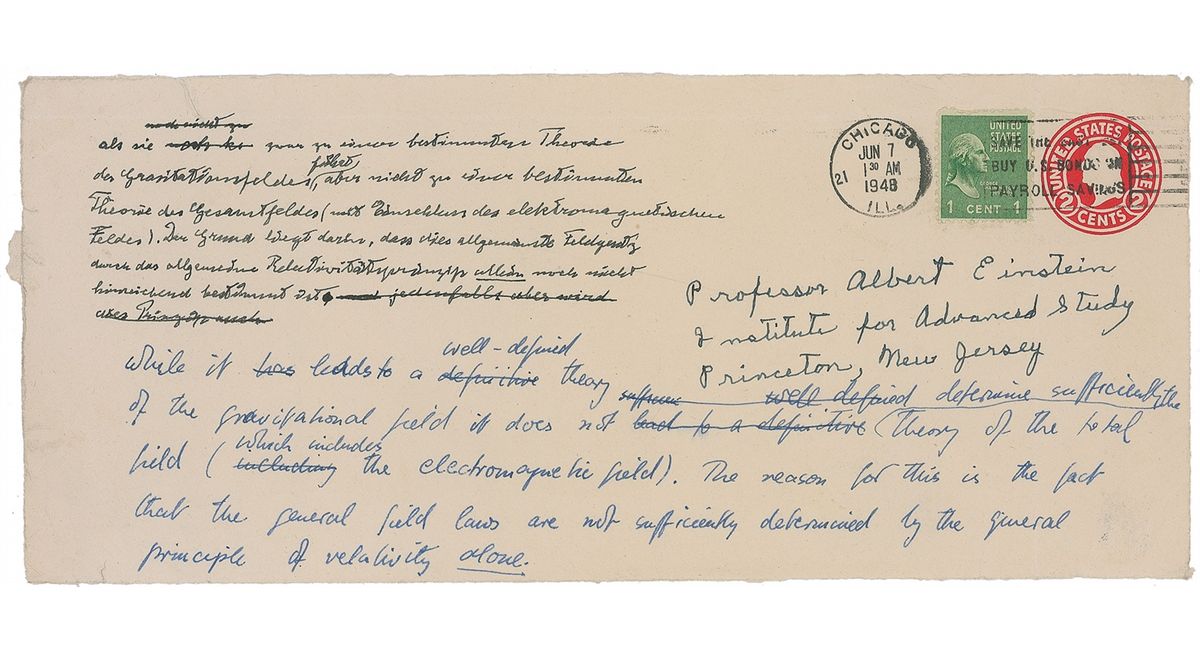 noch nicht zu
als sie zwar zu einer bestimmten Theorie
führt,
des Gravitationsfeldes, aber nicht zu einer bestimmten
Theorie des Gesamtfeldes (mit Einschluss des elektromagnetischen
Feldes). Der Grund liegt darin, dass dies allgemeinste Feldgesetz
durch das allgemeine Relativitätsprinzip allein noch nicht
hinreichend bestimmt ist, und jedenfalls aber wird
dies Prinzip auch
CHICAGO
JUN 7
1 30 AM
1948
21
ILL.
UNITED
STATES
POSTAGE
1 CENT 1
BUY U.S. BONDS
PAYROLL SAVINGS
UNITED STATES POSTAGE
2 CENTS 2
Professor Albert Einstein
Institute for Advanced Study
Princeton, New Jersey
well-defined
while it has leads to a definitive theory
sufficien well defined determine sufficiently the
of the gravitational field it does not lead to a definitive (theory of the total
which includes
field (including the electromagnetic field). The reason for this is the fact
that the general field laws are not sufficiently determined by the general
principle of relativity alone.